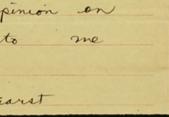 pinion on
to me
earst